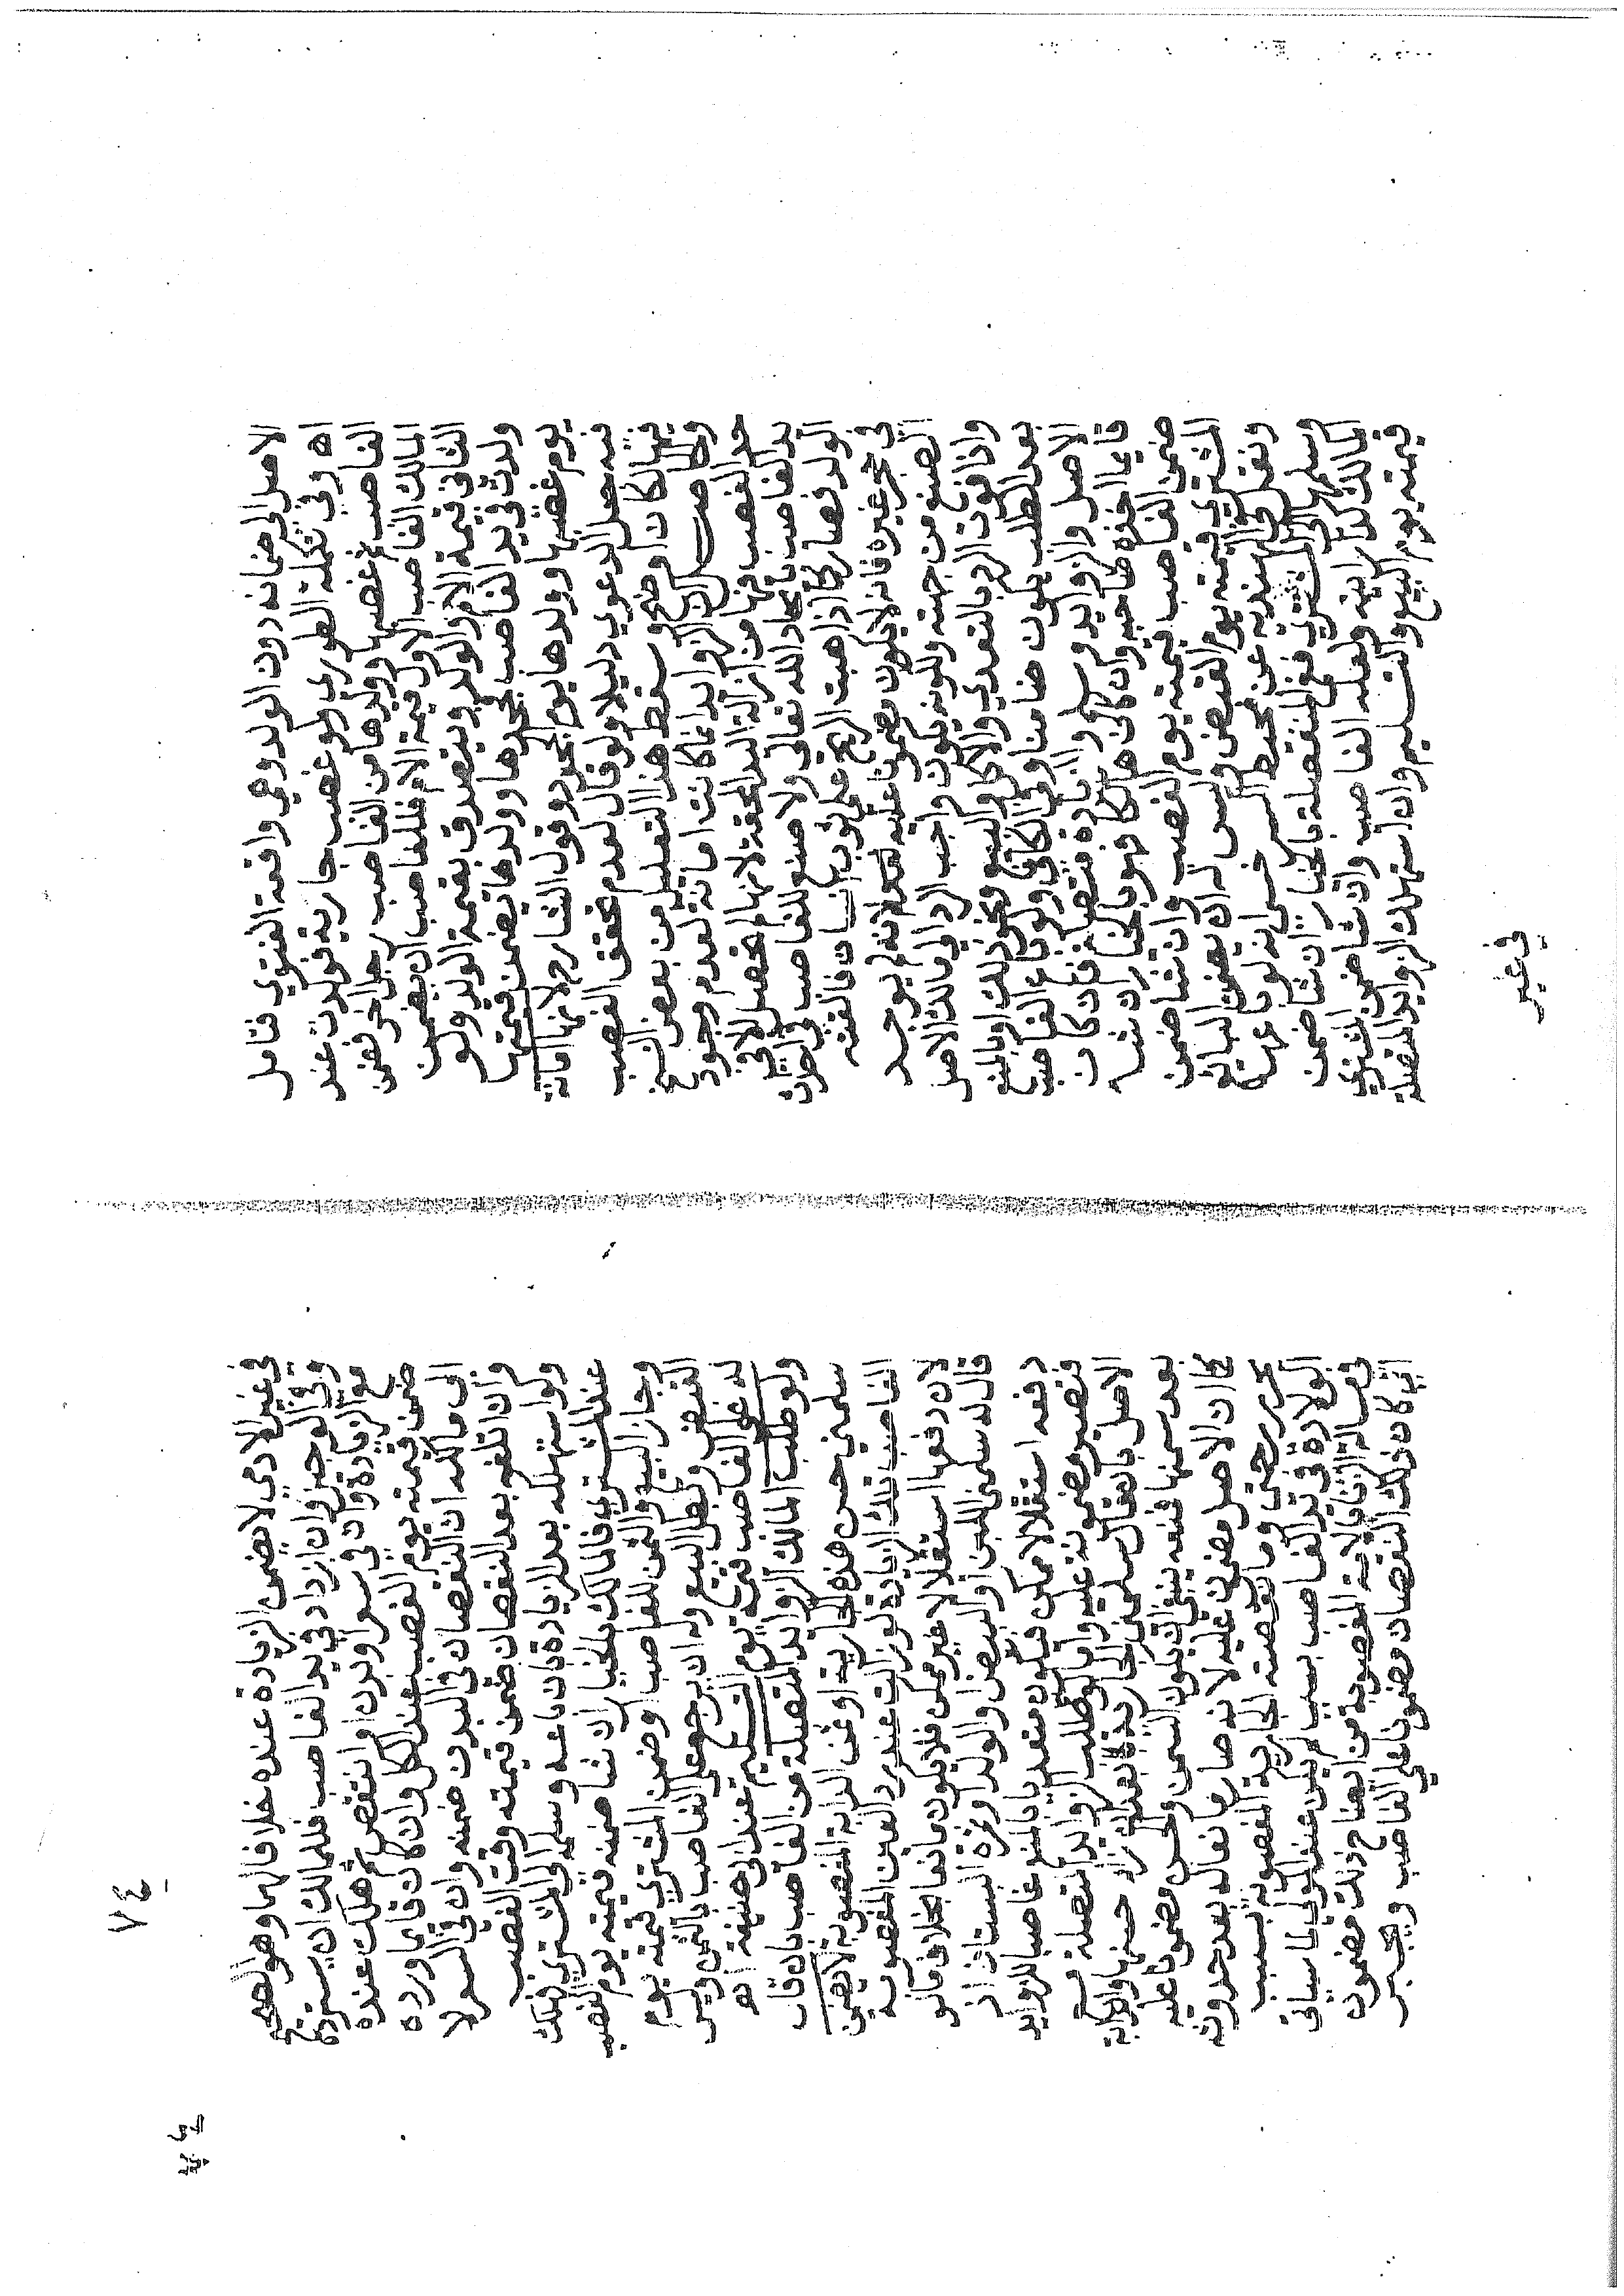 الاصل الى ضمانه دون الولد وهي واقعة الفتوى فتامل
اه وفي تكملة الطوري ولو غصب جارية فولدت عند
الغاصب ثم غصبها وولدها من الغاصب رجل اخر فضمن
المالك الغاصب الاول قيمة الام فللغاصب ان يضمن
الثاني قيمة الام والولد ويتصدق بقيمة الولد ولو
ولدت في يد الغاصب فجحدها وولدها يضمن قيمتها
يوم غصبها وولدها يوم الجحود وقول الشارح لانها امانة
فيه جعل الدعوى دليلا ولو قال لعدم تحقق الغصب
فيها لكان اوضح وسقط هذا التعليل من بعض النسخ
والحاصل ان الزوايد انما كانت امانة لعدم وجود
حد الغصب فيها من ازالة اليد المحقة لانها لم تحصل الا في
يد الغاصب بايجاد الله تعالى ولا صنع للغاصب في احداث
الولد فصار كما اذا هبت الريح على ثوب انسان فالقته
في حجر غيره فانه لا يكون مضمونا عليه لانه لم يوجد
الصنع من جهته ولكونه يكون واجب الرد الى مالك الاصل
واذا فوت الرد بالتعدي والاكل والبيع ونحو ذلك او بالمنع
بعد الطلب يكون ضامنا وفي الكافي ولو باع الغاصب
الاصل والزوايد وسلم والزيادة متصلة فان كان
قايما اخذه صاحبه وان كان هالكا فهو بالخيار ان شاء
ضمن الغاصب قيمته يوم الغصب وان شاء ضمن
المشتري قيمته يوم القبض وليس له ان يضمن البائع
ونقل في الهندية عن محيط السرخسي انه لو باعها
وسلمها الى المشتري ففي المنفصلة بالخيار ان شاء ضمن
المالك كذا رايته ولعله الغاصب وان شاء ضمن المشتري
قيمته يوم البيع والتسليم وان استهلك الزوايد المتصلة
في غير
٧٤
في غير الادمي لا يضمن الزيادة عنده خلافا لهما وهو الصحيح
وفي الوجيز وان ازداد في يد الغاصب فللمالك ان يسترده
مع الزيادة وان في سعر او بدن او انتقص ثم هلك عنده
ضمن قيمته يوم الغصب عند الكل وان كان قايما ورده
الى مالكه ان النقصان في البدن ضمنه وان في السعر لا
وان تلفه بعد النقصان ضمن قيمته وقت الغصب
ولو استهلكه بعد الزيادة بان باعه وسلمه الى المشتري فهلك
عند المشتري فالمالك بالخيار ان شاء ضمنه قيمته يوم الغصب
وجاز البيع والثمن للغاصب او ضمن المشتري قيمته يوم
القبض وبطل البيع وله ان يرجع على الغاصب بالثمن وليس
له على الغاصب قيمته يوم التسليم عند ابي حنيفة اه
ولو طلب المالك الزوايد المتصلة من الغاصب بان قال
سلمني حسن هذه الجارية او سمن الدابة المغصوبة لا يضمن
الغاصب تلك الزيادة لو زالت عنده برد العين المغصوبه
لان دفعها استقلالا غير ممكن فلا يكون مانعا بخلاف ما لو
قال له سلمني اللبن او البيض او الولد او ثمرة البستان اذ
دفعه استقلالا ممكن فيكون متعديا بالمنع غاصبا للزوايد
فتصير مضمونة عليه واما لو طلب الزوايد المتصلة مع
الاصل بان قال سلمني الجارية بعد ان زاد حسنها والدابة
بعد سمنها فمنعه ينبغي ان يكون السمن والحسن مضمونا عليه
كما ان الاصل مضمون عليه لانه صار مانعا له بعد حدوثه
حرره رحمتي وما نقصته الجارية المغصوبة بسبب
الولادة في يد الغاصب بسبب لم يكن عند المولى لما سياتي
في مسالة الزنا بالامة المغصوبة من ايضاح ذلك مضمون
اي كان ذلك النقصان مضمونا على الغاصب ويجبر